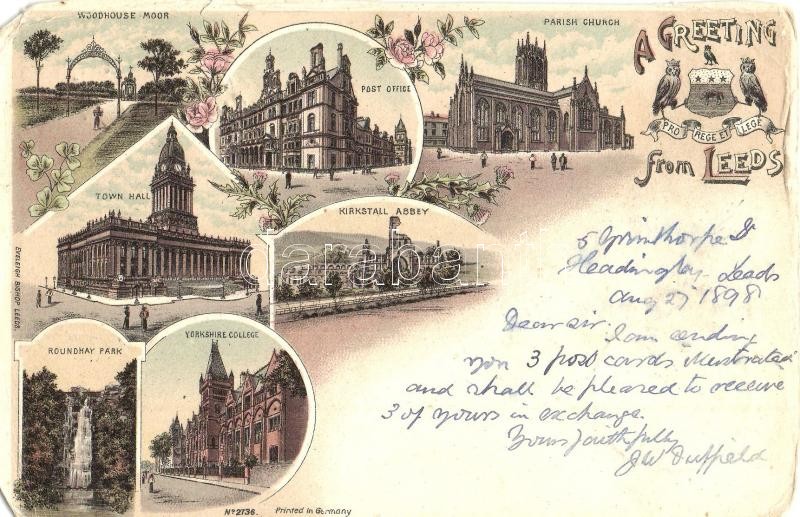 WOODHOUSE MOOR
POST OFFICE
PARISH CHURCH
A GREETING
PRO REGE ET LEGE
from LEEDS
TOWN HALL
KIRKSTALL ABBEY
EVELEIGH BISHOP LEEDS.
ROUNDHAY PARK
YORKSHIRE COLLEGE
No 2736. Printed in Germany
5
Headingley Leeds
Aug 27 1898
Dear sir. I am sending
you 3 post cards illustrated
and shall be pleased to receive
3 of yours in exchange.
Yours faithfully
J W Duffield